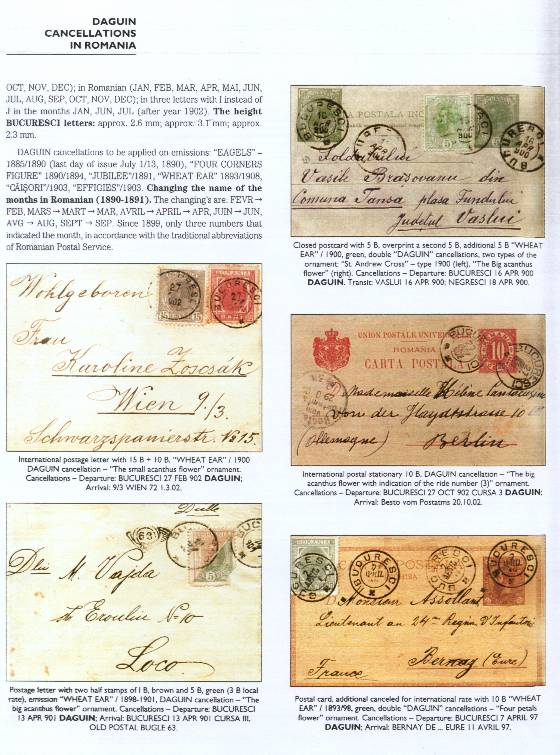 DAGUIN
CANCELLATIONS
IN ROMANIA
OCT, NOV, DEC); in Romanian (JAN, FEB, MAR, APR, MAI, JUN,
JUL, AUG, SEP, OCT, NOV, DEC); in three letters with I instead of
J in the months JAN, JUN, JUL (after year 1902). The height
BUCURESCI letters: approx. 2.6 mm; approx. 3.1 mm; approx.
2.3 mm.
DAGUIN cancellations to be applied on emissions: "EAGELS" –
1885/1890 (last day of issue July 1/13, 1890), "FOUR CORNERS
FIGURE" 1890/1894, "JUBILEE"/1891, "WHEAT EAR" 1893/1908,
"CĂIȘORI"/1903, "EFFIGIES"/1903. Changing the name of the
months in Romanian (1890-1891). The changing's are: FEVR →
FEB, MARS → MART → MAR, AVRIL → APRIL → APR, JUIN → JUN,
AVG → AUG, SEPT → SEP. Since 1899, only three numbers that
indicated the month, in accordance with the traditional abbreviations
of Romanian Postal Service.
Wohlgeboren
Frau
Karoline Zoscsák
Wien 9/3
Schwarzspanierstr. No 15.
International postage letter with 15 B + 10 B, "WHEAT EAR" / 1900
DAGUIN cancellation – "The small acanthus flower" ornament.
Cancellations – Departure: BUCURESCI 27 FEB 902 DAGUIN;
Arrival: 9/3 WIEN 72 1.3.02.
63
Dlui M. Vajda
Eroului No 10
Loco
Postage letter with two half stamps of I B, brown and 5 B, green (3 B local
rate), emission "WHEAT EAR" / 1898-1901, DAGUIN cancellation – "The
big acanthus flower" ornament. Cancellations – Departure: BUCURESCI
13 APR 901 DAGUIN; Arrival: BUCURESCI 13 APR 901 CURSA III,
OLD POSTAL BUGLE 63.
Vasile Brasovanu din
Comuna Tansa plasa Fundului
Judetul Vaslui
Closed postcard with 5 B, overprint a second 5 B, additional 5 B "WHEAT
EAR" / 1900, green, double "DAGUIN" cancellations, two types of the
ornament: "St. Andrew Cross" – type 1900 (left), "The Big acanthus
flower" (right). Cancellations – Departure: BUCURESCI 16 APR 900
DAGUIN. Transit: VASLUI 16 APR 900; NEGRESCI 18 APR 900.
UNION POSTALE UNIVERSELLE
ROMANIA
CARTA POSTALA
10
Mademoiselle Hélène
von der Heydtstrasse 10
(Allemagne) Berlin
International postal stationary 10 B. DAGUIN cancellation – "The big
acanthus flower with indication of the ride number (3)" ornament.
Cancellations – Departure: BUCURESCI 27 OCT 902 CURSA 3 DAGUIN;
Arrival: Besto vom Postatms 20.10.02.
BUCURESCI
Monsieur Assollant
Lieutenant au 24me Regim d'Infanterie
Bernay (Eure)
France
Postal card, additional canceled for international rate with 10 B "WHEAT
EAR" / 1893/98, green, double "DAGUIN" cancellations – "Four petals
flower" ornament. Cancellations – Departure: BUCURESCI 7 APRIL 97
DAGUIN; Arrival: BERNAY DE ... EURE 11 AVRIL 97.